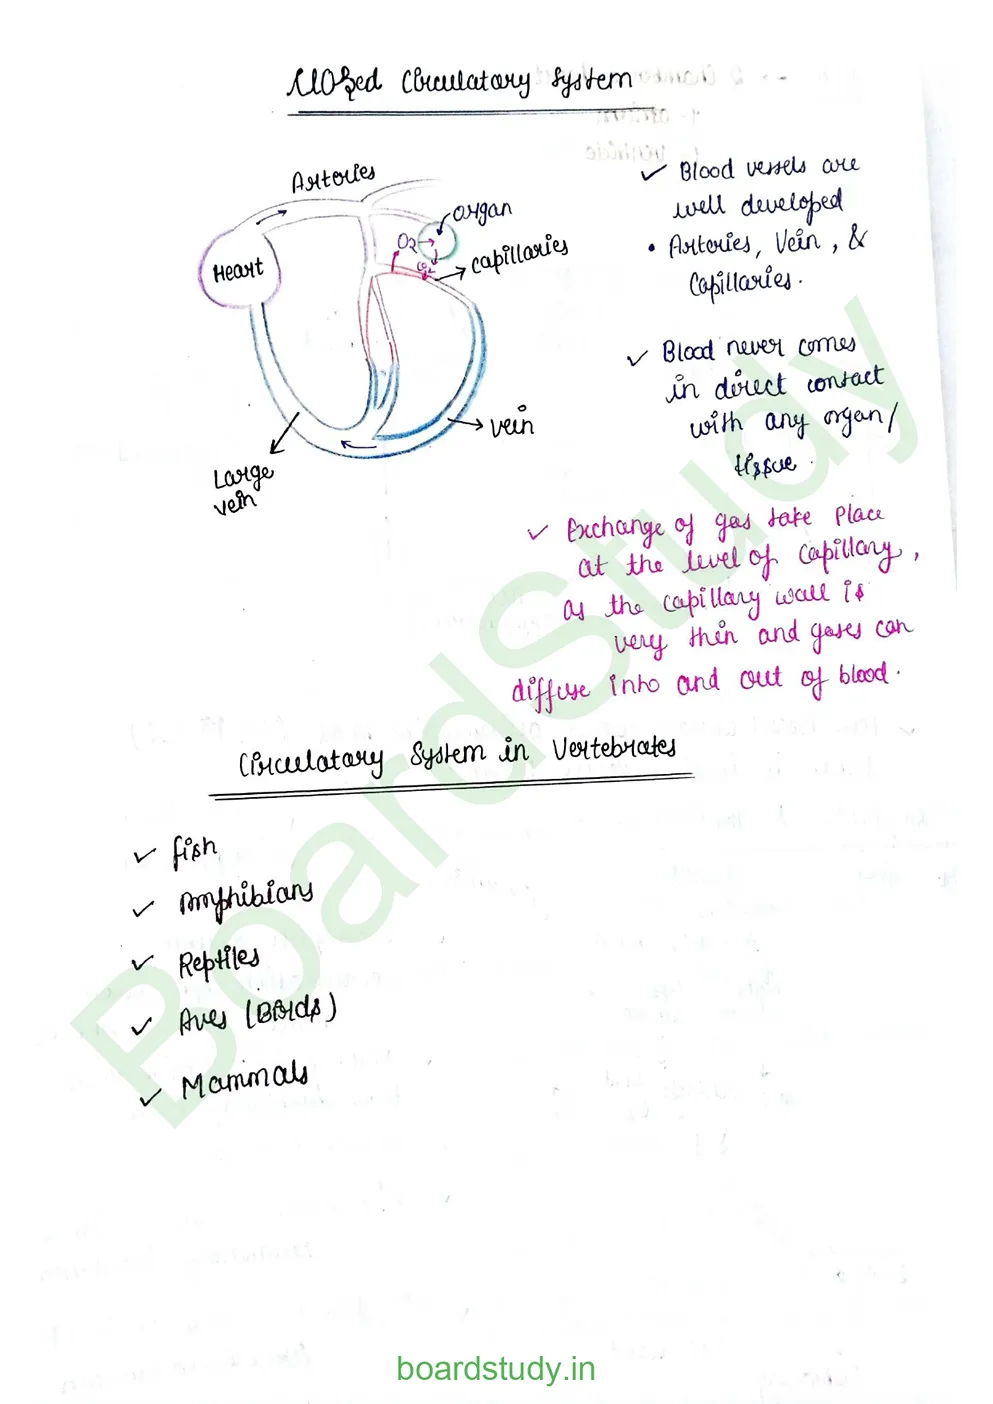 Closed Circulatory System
Arteries
organ
O2
Heart
CO2
capillaries
vein
Large
vein
✓ Blood vessels are
well developed
• Arteries, Vein, &
Capillaries.
✓ Blood never comes
in direct contact
with any organ/
tissue.
✓ Exchange of gas take place
at the level of capillary,
as the capillary wall is
very thin and gases can
diffuse into and out of blood.
Circulatory System in Vertebrates
✓ fish
✓ Amphibians
✓ Reptiles
✓ Aves (Birds)
✓ Mammals
BoardStudy
boardstudy.in